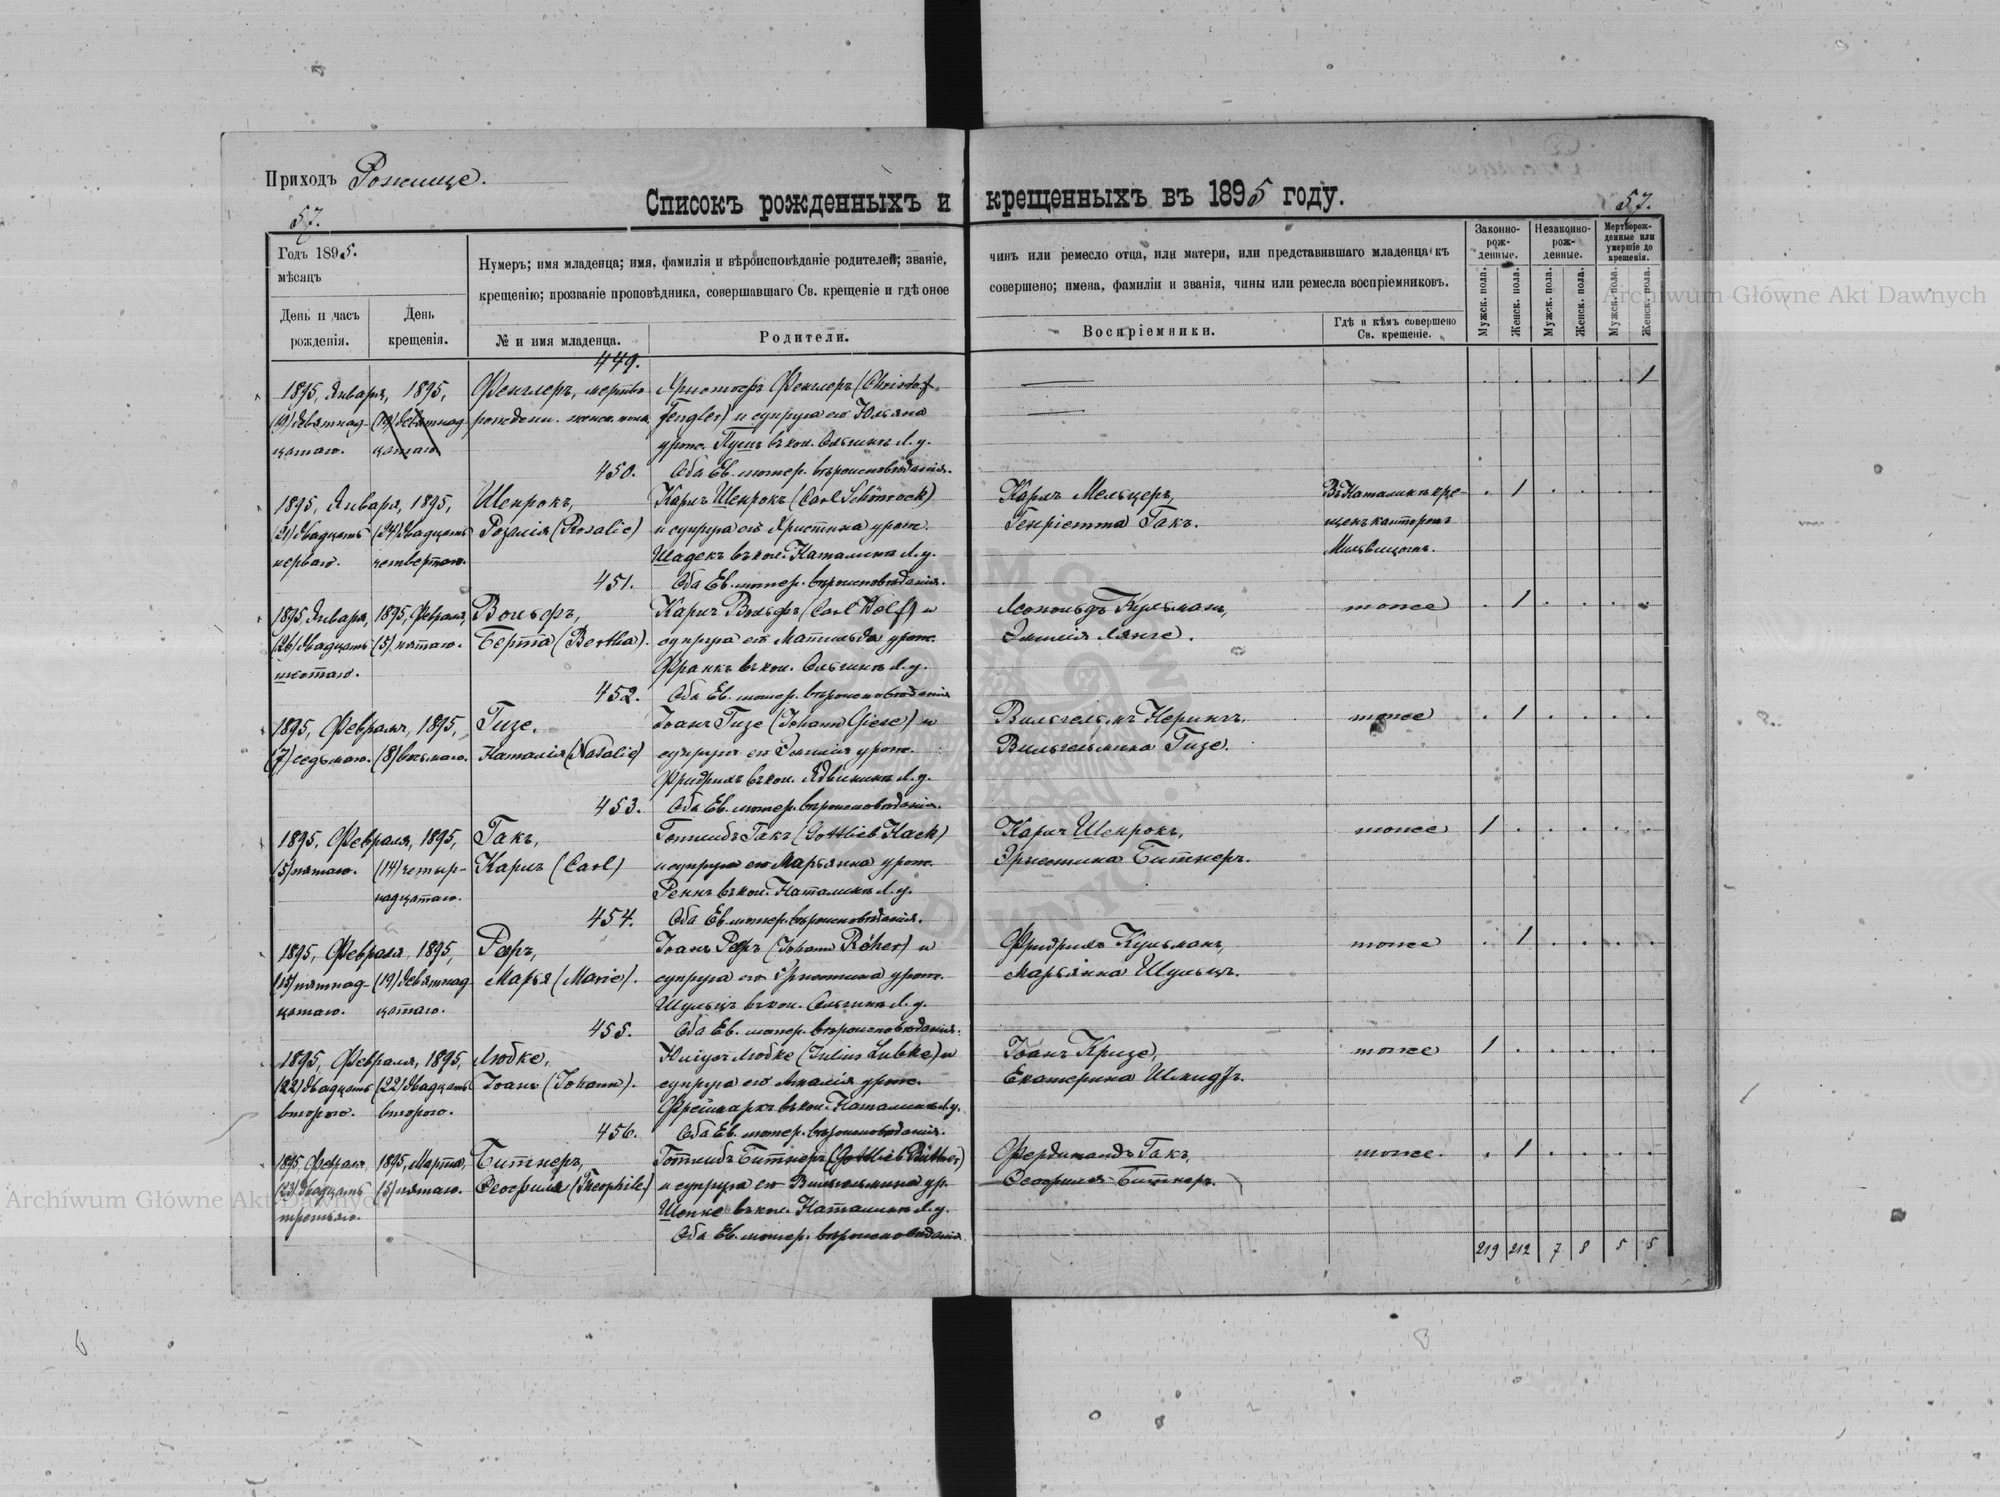 Приходъ Рожище.
57.
Списокъ рожденныхъ и крещенныхъ въ 1895 году.
57.
Годъ 1895.
мѣсяцъ
День и часъ рожденія.
День крещенія.
Нумеръ; имя младенца; имя, фамилія и вѣроисповѣданіе родителей; званіе,
крещенію; прозваніе проповѣдника, совершавшаго Св. крещеніе и гдѣ оное
№ и имя младенца.
Родители.
чинъ или ремесло отца, или матери, или представившаго младенца къ
совершено; имена, фамиліи и званія, чины или ремесла воспріемниковъ.
Воспріемники.
Гдѣ и кѣмъ совершено
Св. крещеніе.
Законно-
рож-
денные.
Незаконно-
рож-
денные.
Мертворож-
денные или
умершіе до
крещенія.
Мужск. пола.
Женск. пола.
Мужск. пола.
Женск. пола.
Мужск. пола.
Женск. пола.
449.
1895, Января, 1895,
(19) девятнад- (19) девятнад-
цатаго. цатаго
Фенглеръ, мертво
рожден. женск. пола
Христофъ Фенглеръ (Christof
Fengler) и супруга его Юльяна
урож. Пущъ въ кол. Ольгинъ Л. у.
Оба Ев. лютер. вѣроисповѣданія.
1
450.
1895, Января, 1895,
(21) двадцать (24) двадцать
перваго. четвертаго.
Шенрокъ,
Розалія (Rosalie)
Карлъ Шенрокъ (Carl Schönrock)
и супруга его Христина урож.
Шадекъ въ кол. Наталинъ Л. у.
Оба Ев. лютер. вѣроисповѣданія.
Карлъ Мельцеръ,
Генріетта Гакъ.
Въ Наталинѣ кре-
щенъ канторомъ
1
451.
1895, Января, 1895, Февраля,
(26) двадцать (5) пятаго.
шестаго.
Вольфъ,
Берта (Bertha).
Карлъ Вольфъ (Carl Wolf) и
супруга его Матильда урож.
Франкъ въ кол. Ольгинъ Л. у.
Оба Ев. лютер. вѣроисповѣданія
Леопольдъ Кульманъ,
Эмилія Лянге.
тоже
1
452.
1895, Февраля, 1895,
(7) седьмаго. (8) восьмаго.
Гизе.
Наталія (Natalie)
Іоанъ Гизе (Johann Giese) и
супруга его Эмилія урож.
Фридрихъ въ кол. Ядвининъ Л. у.
Оба Ев. лютер. вѣроисповѣданія.
Вильгельмъ Нерингъ,
Вильгельмина Гизе.
тоже
1
453.
1895, Февраля, 1895,
(5) пятаго. (14) четыр-
надцатаго.
Гакъ,
Карлъ (Carl)
Готлибъ Гакъ (Gottlieb Hack)
и супруга его Марьянна урож.
Реннъ въ кол. Наталинъ Л. у.
Оба Ев. лютер. вѣроисповѣданія.
Карлъ Шенрокъ,
Эрнстина Битнеръ.
тоже
1
454.
1895, Февраля, 1895,
(15) пятнад- (19) девятнад-
цатаго. цатаго.
Реръ,
Марья (Marie).
Іоанъ Реръ (Johann Röher) и
супруга его Эрнстина урож.
Шульцъ въ кол. Ольгинъ Л. у.
Оба Ев. лютер. вѣроисповѣданія.
Фридрихъ Кульманъ,
Марьянна Шульцъ.
тоже
1
455.
1895, Февраля, 1895,
(22) двадцать (22) двадцать
втораго. втораго.
Любке,
Іоанъ (Johann).
Юліусъ Любке (Julius Lubke) и
супруга его Амалія урож.
Фреймаркъ въ кол. Наталинъ Л. у.
Оба Ев. лютер. вѣроисповѣданія.
Іоанъ Кризе,
Екатерина Шмидтъ.
тоже
1
456.
1895, Февраля, 1895, Марта,
(23) двадцать (5) пятаго.
третьяго.
Битнеръ,
Феофиля (Theophile)
Готлибъ Битнеръ (Gottlieb Büttner)
и супруга его Вильгельмина ур.
Шепке въ кол. Наталинъ Л. у.
Оба Ев. лютер. вѣроисповѣданія
Фердинандъ Гакъ,
Феофиля Битнеръ.
тоже.
1
219 212 7 8 5 5
Archiwum Główne Akt Dawnych
Archiwum Główne Akt Dawnych